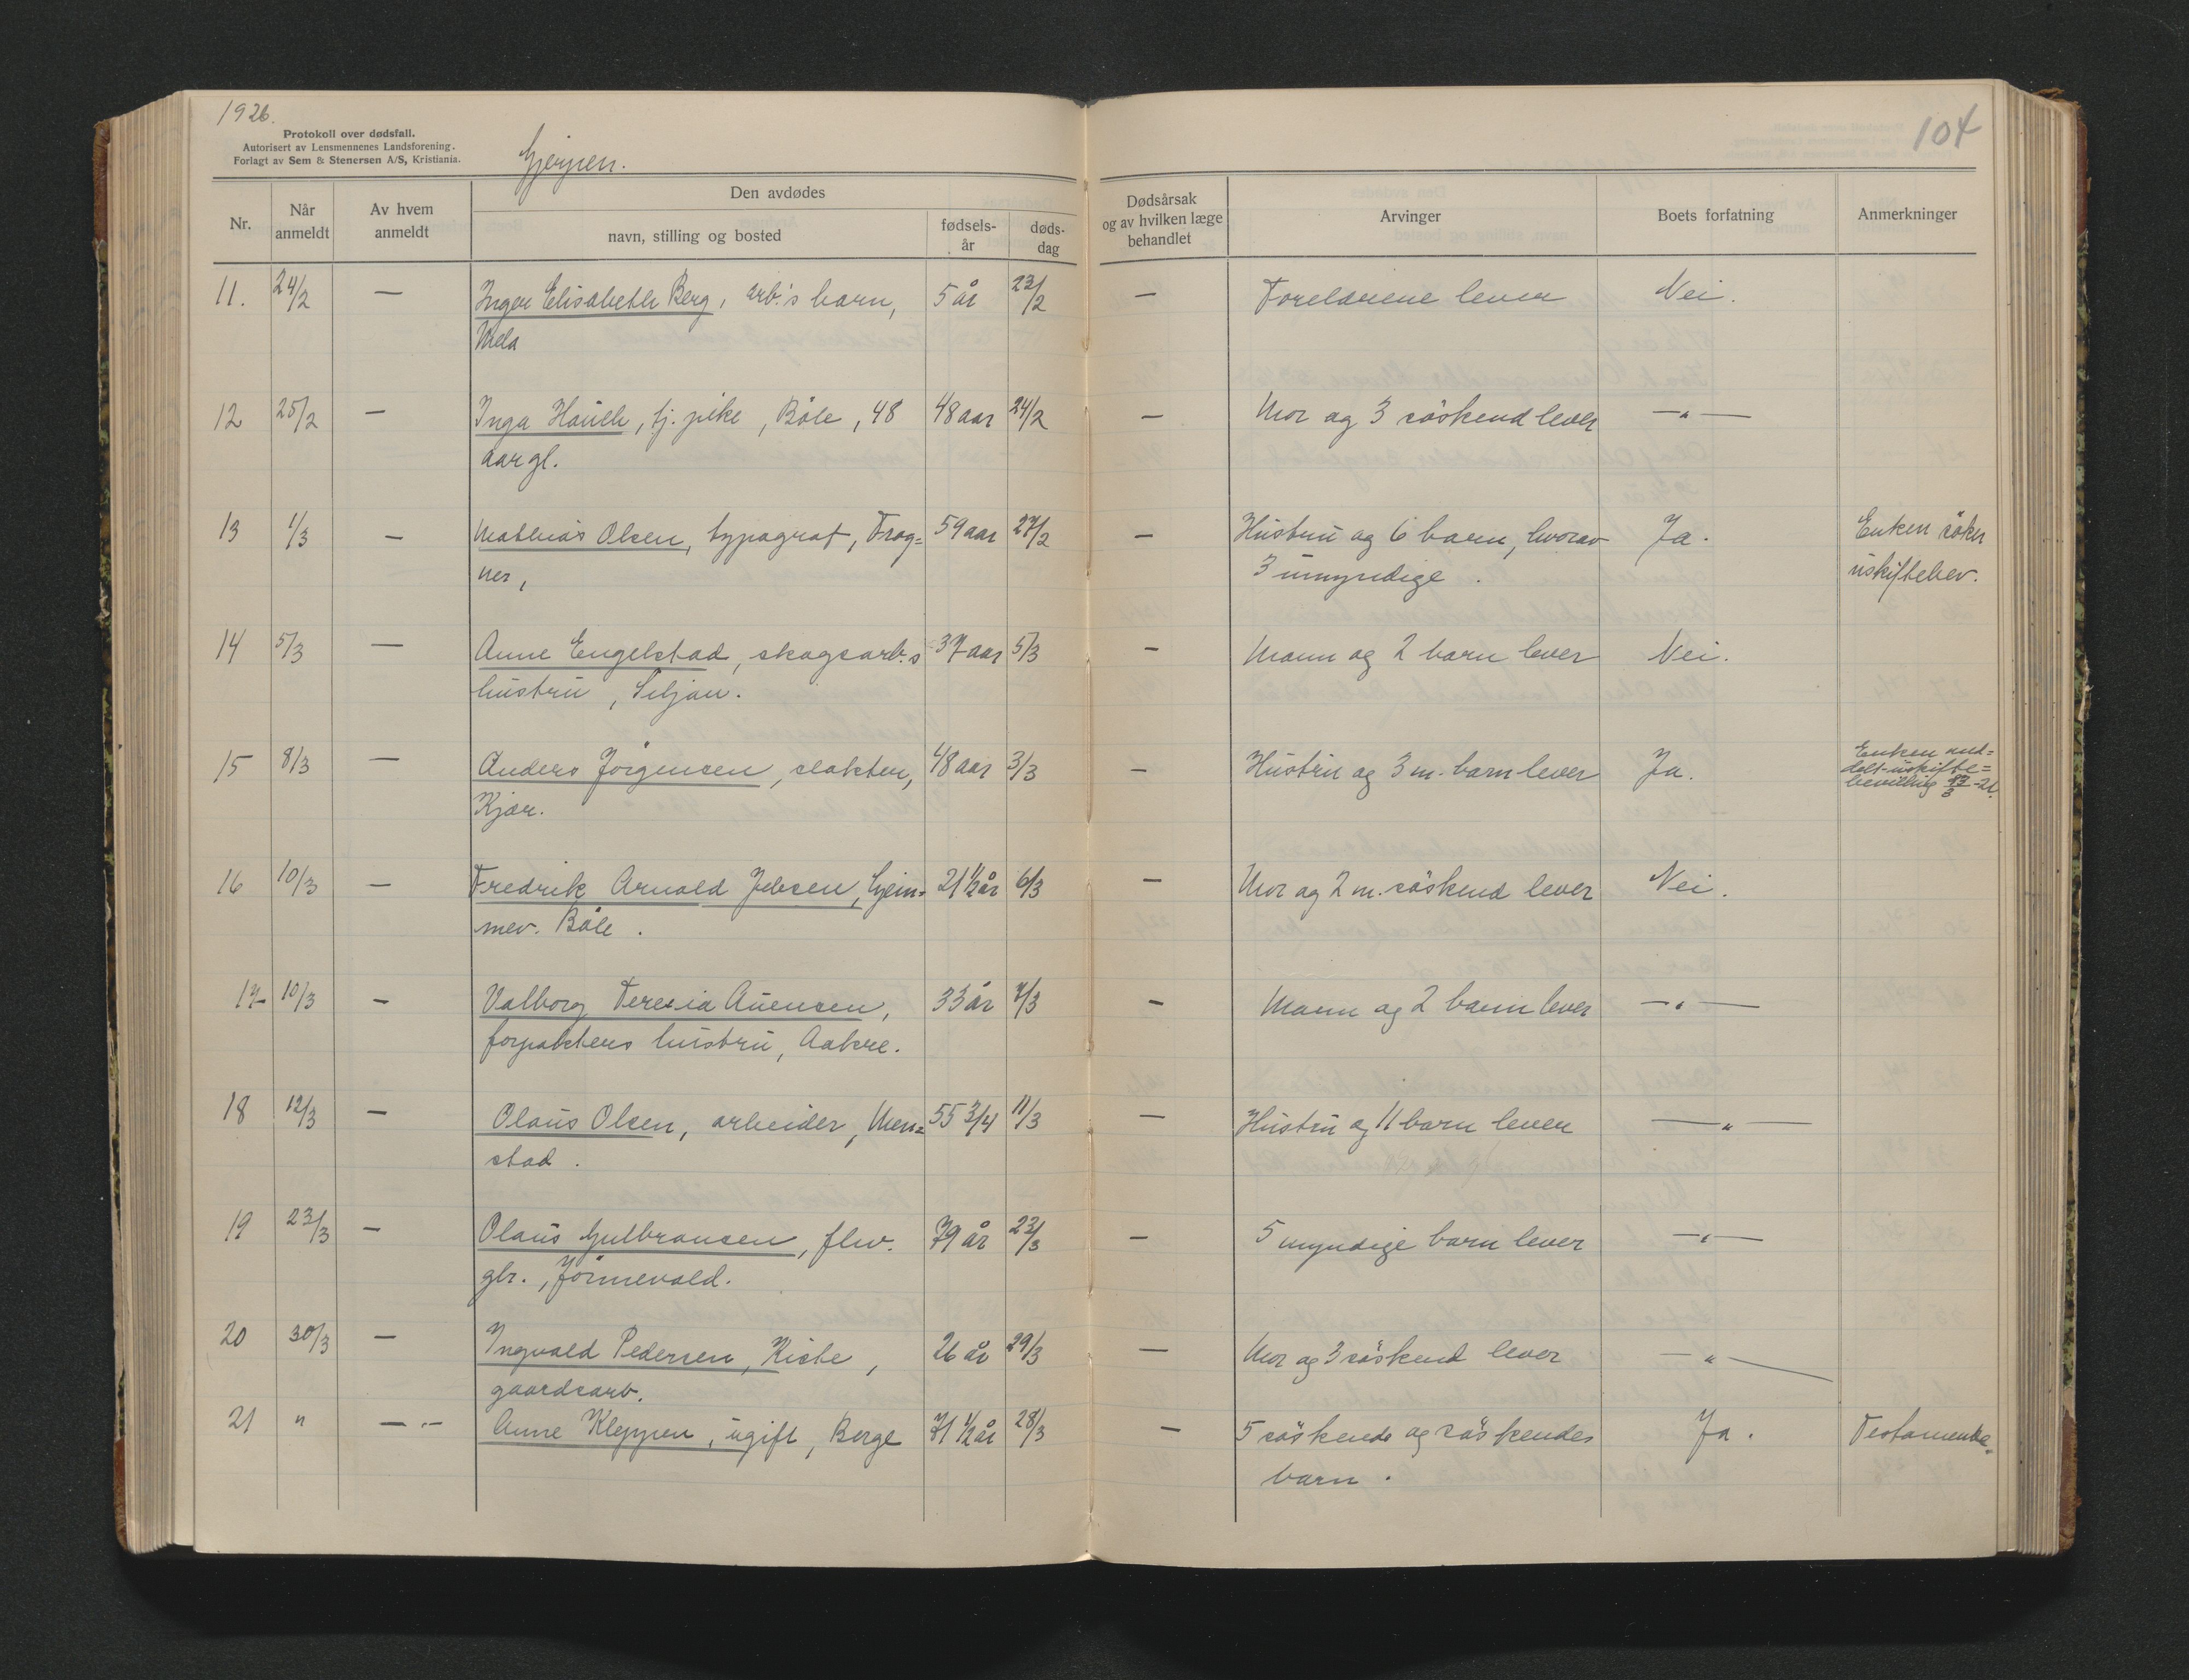 1926.
Protokoll over dødsfall.
Autorisert av Lensmennenes Landsforening.
Forlagt av Sem & Stenersen A/S, Kristiania.
Gjerpen.
104
Nr.
Når anmeldt
Av hvem anmeldt
Den avdødes
navn, stilling og bosted
fødsels-år
døds-dag
Dødsårsak og av hvilken læge behandlet
Arvinger
Boets forfatning
Anmerkninger
11. 24/2 — Inger Elisabeth Berg, arb.'s barn, 5 år 23/2 — Foreldrene lever Nei.
Mela
12 25/2 — Inga Hauch, tj. pike, Bøle, 48 48 aar 24/2 — Mor og 3 søskend lever —„—
aar gl.
13 1/3 — Mathias Olsen, typograf, Frog= 59 aar 27/2 — Hustru og 6 barn, hvorav Ja. Enken søker
ner, 3 umyndige. uskiftebev.
14 5/3 — Anne Engelstad, skogsarb.s 37 aar 5/3 — Mann og 2 barn lever Nei.
hustru, Siljan.
15 8/3 — Anders Jørgensen, slakter, 48 aar 3/3 — Hustru og 3 m. barn lever Ja. Enken med=
delt uskifte=
Kjær. bevilling 13/3-26.
16 10/3 — Fredrik Arnold Jebsen, hjem= 21 1/2 år 6/3 — Mor og 2 m. søskend lever Nei.
mev. Bøle.
17 10/3 — Valborg Teresia Auensen, 33 år 7/3 — Mann og 2 barn lever —„—
forpakters hustru, Aakre.
18 12/3 — Olaus Olsen, arbeider, Men= 55 3/4 11/3 — Hustru og 11 barn lever —„—
stad.
19 23/3 — Olaus Gulbransen, flw. 79 år 23/3 — 5 myndige barn lever —„—
gbr., Jønnevald.
20 30/3 — Ingvald Pedersen, Kiste, 26 år 29/3 — Mor og 3 søskend lever —„—
gaardsarb.
21 " —„— Anne Kleppen, ugift, Berge 71 1/2 år 28/3 — 5 søskende og søskendes Ja. Testamente.
barn.